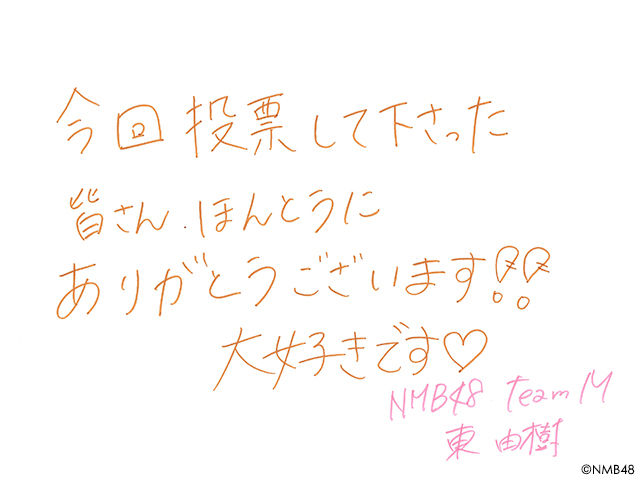 今回投票して下さった
皆さん、ほんとうに
ありがとうございます!!
大好きです♡
NMB48 team M
東由樹
©NMB48